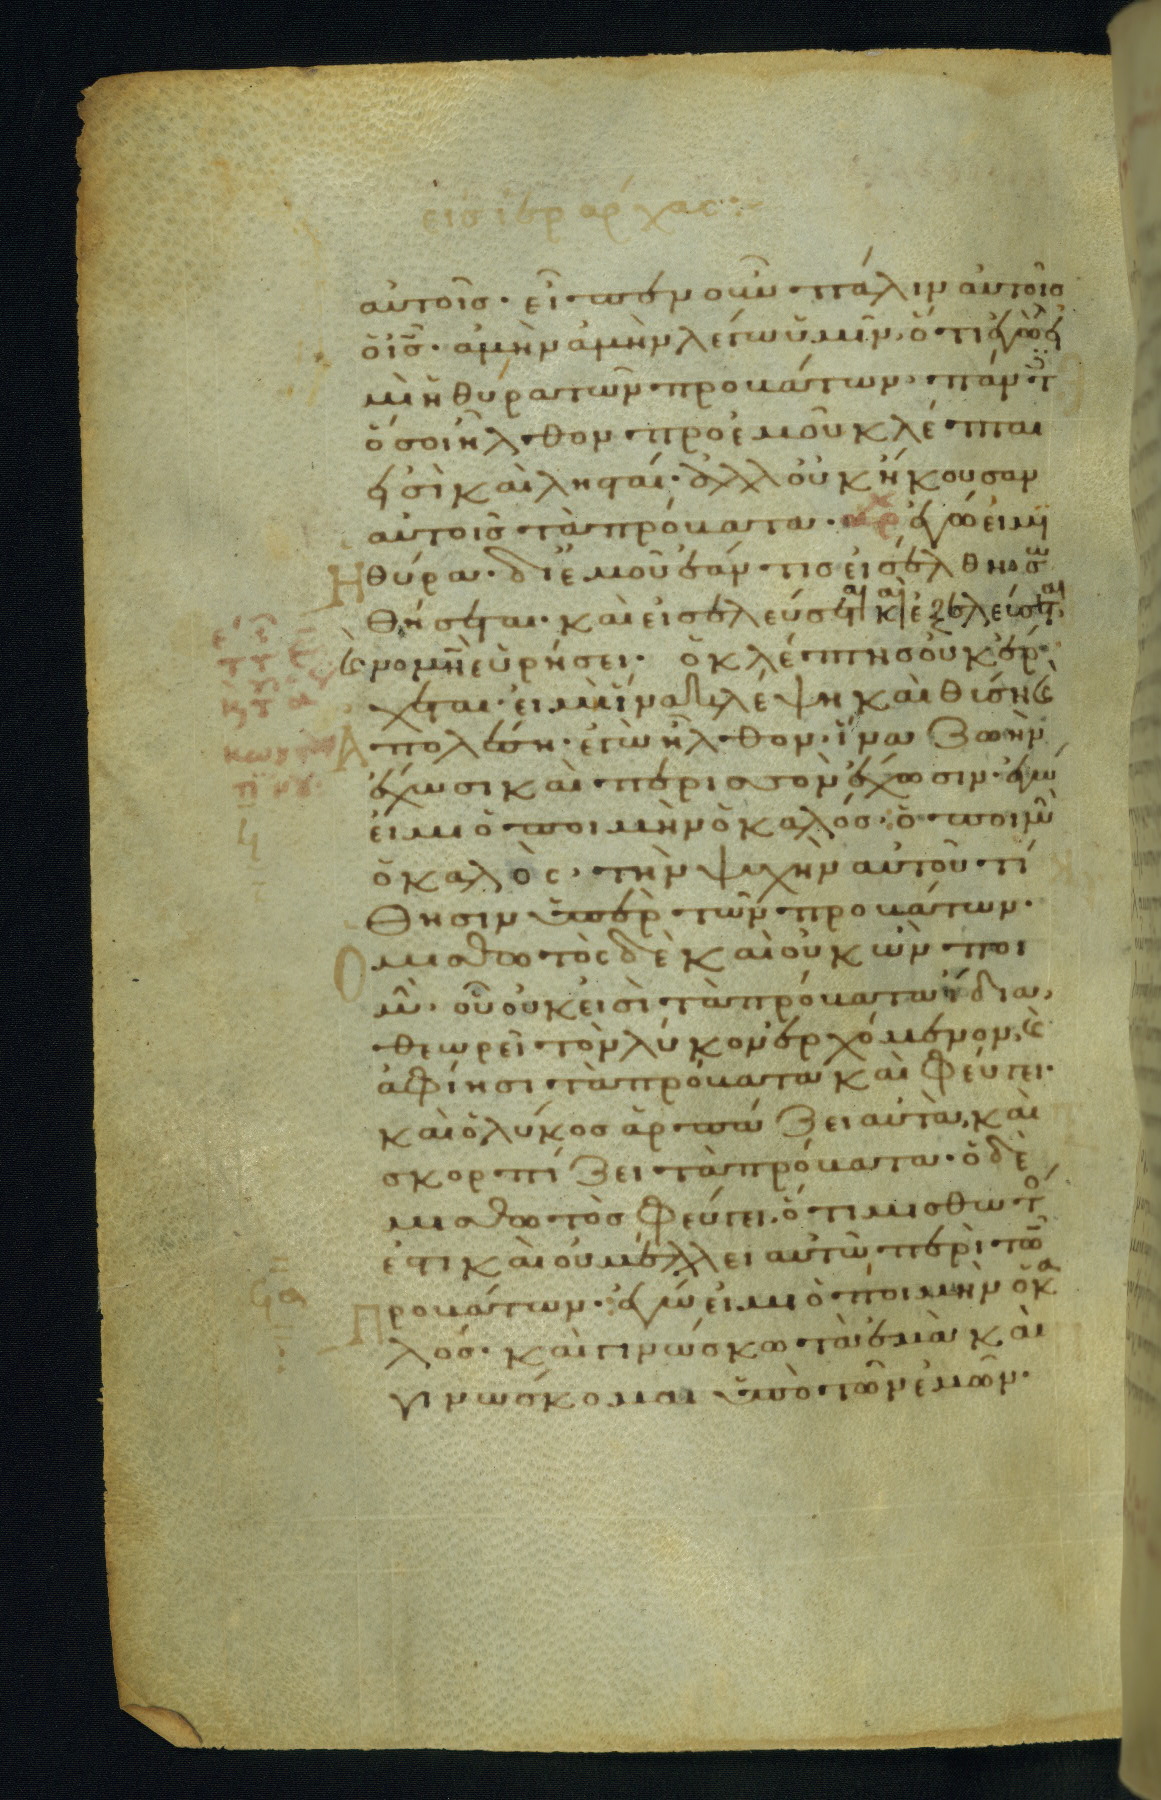 αὐτοῖσ· εἶπεν οὖν πάλιν αὐτοῖσ
ὁ ἰσ̅· ἀμὴν ἀμὴν λέγω ὑμῖν, ὅτι ἐγώ εἰ
μι ἡ θύρα τῶν προβάτων· πάντ
ὅσοι ἦλθον πρὸ ἐμοῦ κλέπται
εἰσὶ καὶ λησταί· ἀλλ οὐκ ἤκουσαν
αὐτοῖσ τὰ πρόβατα· ἐγώ εἰμι ἡ
θύρα· δι ἐμοῦ ἐάν τισ εἰσέλθη· σω
θήσεται· καὶ εἰσελεύσεται κ ἐξελεύσεται
κ νομὴν εὑρήσει· ὁ κλέπτησ οὐκ ἔρ
χεται· εἰ μὴ ἵνα κλέψη καὶ θύση κ
ἀπολέση· ἐγὼ ἦλθον· ἵνα ζωὴν
ἔχωσι καὶ περισσὸν ἔχωσιν· ἐγώ
εἰμι ὁ ποιμὴν ὁ καλόσ· ὁ ποιμὴν
ὁ καλὸς, τὴν ψυχὴν αὐτοῦ τί
θησιν ὑπὲρ τῶν προβάτων·
Ο μισθωτὸς δὲ καὶ οὐκ ὢν ποι
μὴν· οὗ οὐκ εἰσὶ τὰ πρόβατα ἴδια,
θεωρεῖ τὸν λύκον ἐρχόμενον, κ
ἀφίησι τὰ πρόβατα καὶ φεύγει·
καὶ ὁ λύκοσ ἁρπάζει αὐτὰ, καὶ
σκορπίζει τὰ πρόβατα· ὁ δὲ
μισθωτὸσ φεύγει, ὅτι μισθωτό
ἐστι καὶ οὐ μέλλει αὐτῶ περὶ τῶν
προβάτων· ἐγώ εἰμι ὁ ποιμὴν ὁ κα
λόσ· καὶ γινώσκω τὰ ἐμὰ καὶ
γινώσκομαι ὑπὸ τῶν ἐμῶν·